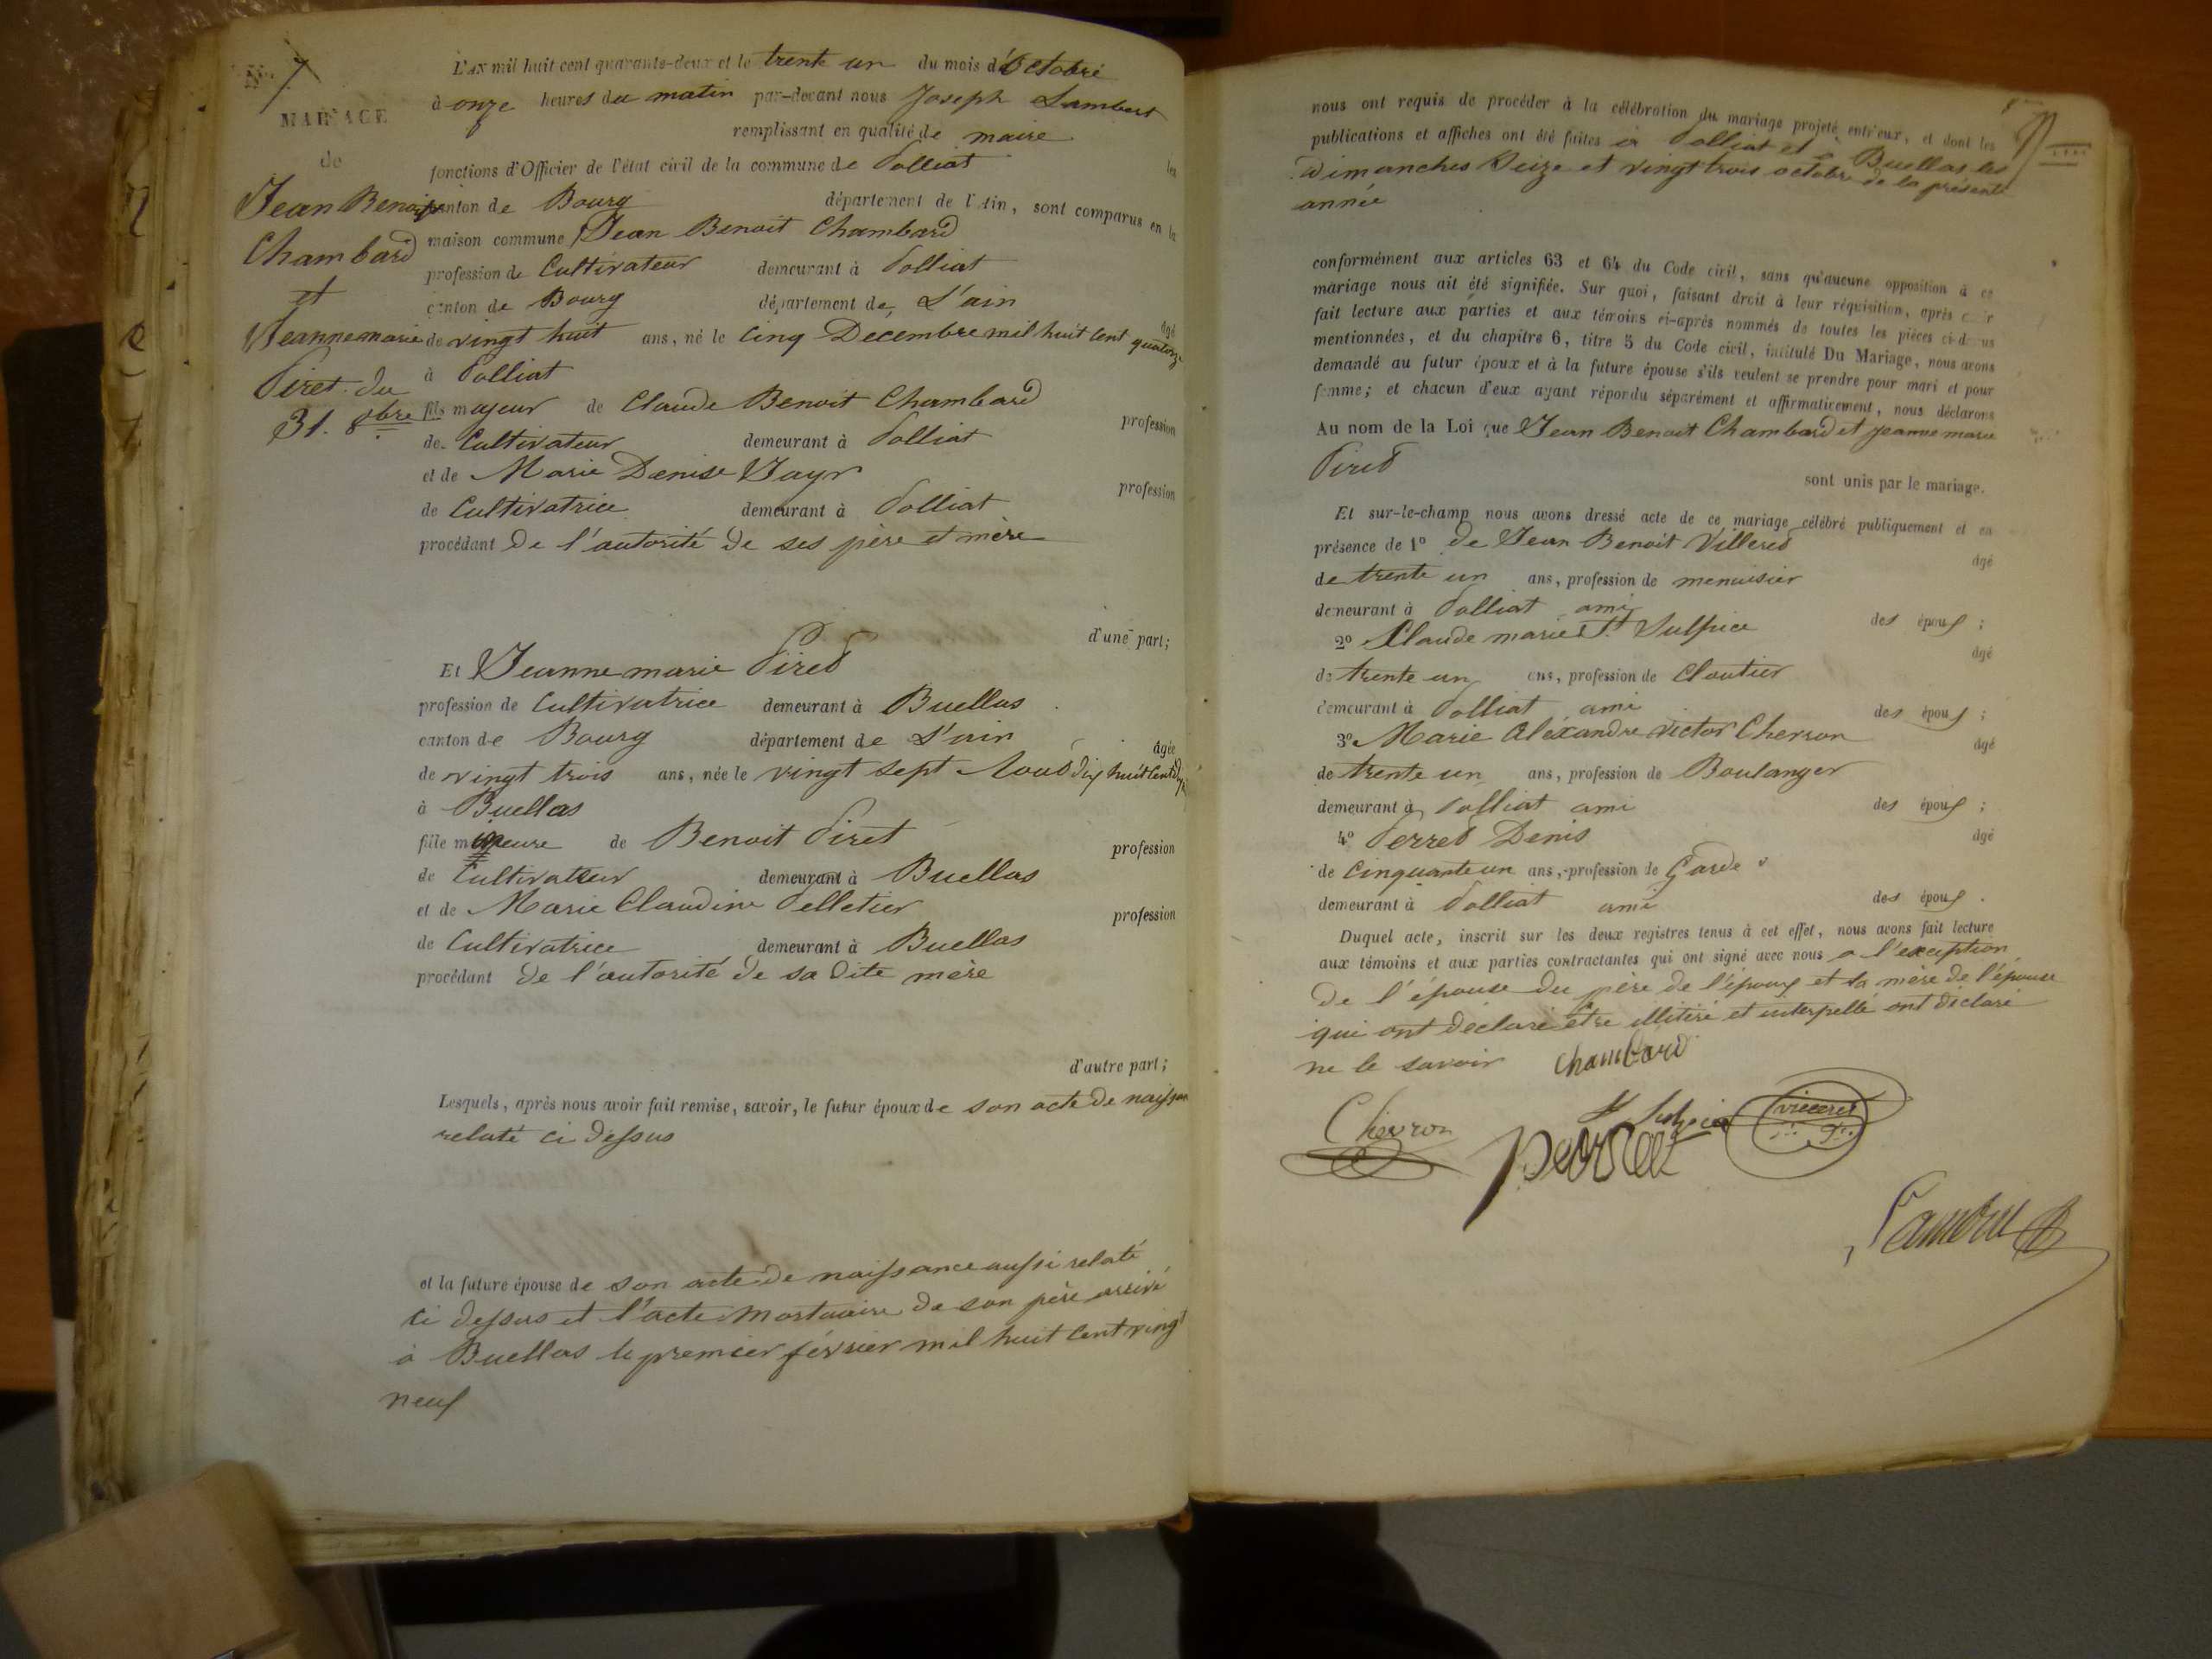 N.° 7
MARIAGE
de
Jean Benoit
Chambard
et
Jeanne marie
Piret du
31. 8bre
L'AN mil huit cent quarante-deux et le trente un du mois d'Octobre
à onze heures du matin par-devant nous Joseph Lambert
remplissant en qualité de maire les
fonctions d'Officier de l'état civil de la commune de Polliat
canton de Bourg département de l'Ain, sont comparus en la
maison commune Jean Benoit Chambard
profession de Cultivateur demeurant à Polliat
canton de Bourg département de L'ain âgé
de vingt huit ans, né le Cinq Decembre mil huit Cent quatorze
à Polliat
fils majeur de Claude Benoit Chambard profession
de Cultivateur demeurant à Polliat
et de Marie Denise Vayr profession
de Cultivatrice demeurant à Polliat
procédant de l'autorité de ses père et mère
d'une part;
Et Jeanne marie Piret
profession de Cultivatrice demeurant à Buellas
canton de Bourg département de L'ain âgée
de vingt trois ans, née le vingt sept Aout dix huit Cent
à Buellas
fille mineure de Benoit Piret profession
de Cultivateur demeurant à Buellas
et de Marie Claudine Pelletier profession
de Cultivatrice demeurant à Buellas
procédant de l'autorité de sa dite mère
d'autre part;
Lesquels, après nous avoir fait remise, savoir, le futur époux de son acte de naissan
relaté ci dessus
et la future épouse de son acte de naissance aussi relaté
ci dessus et l'acte mortuaire de son père arrivé
à Buellas le premier février mil huit Cent vingt
neuf
nous ont requis de procéder à la célébration du mariage projeté entr'eux, et dont les
publications et affiches ont été faites à Polliat et à Buellas les
Dimanches Seize et vingt trois octobre de la présente
année
conformément aux articles 63 et 64 du Code civil, sans qu'aucune opposition à ce
mariage nous ait été signifiée. Sur quoi, faisant droit à leur réquisition, après avoir
fait lecture aux parties et aux témoins ci-après nommés de toutes les pièces ci-dessus
mentionnées, et du chapitre 6, titre 5 du Code civil, intitulé Du Mariage, nous avons
demandé au futur époux et à la future épouse s'ils veulent se prendre pour mari et pour
femme; et chacun d'eux ayant répondu séparément et affirmativement, nous déclarons
Au nom de la Loi que Jean Benoit Chambard et jeanne marie
Piret
sont unis par le mariage.
Et sur-le-champ nous avons dressé acte de ce mariage célébré publiquement et en
présence de 1° de Jean Benoit Villeret âgé
de trente un ans, profession de menuisier
demeurant à Polliat ami des époux;
2° Claude marie St. Sulpice âgé
de trente un ans, profession de Cloutier
demeurant à Polliat ami des époux;
3° Marie Aléxandre victor Chevron âgé
de trente un ans, profession de Boulanger
demeurant à Polliat ami des époux;
4° Perret Denis âgé
de Cinquante un ans, profession de Garde
demeurant à Polliat ami des époux.
Duquel acte, inscrit sur les deux registres tenus à cet effet, nous avons fait lecture
aux témoins et aux parties contractantes qui ont signé avec nous a l'exception
de l'épouse du père de l'époux et la mère de l'épouse
qui ont déclaré être illitéré et interpellé ont déclaré
ne le savoir Chambard
Chevron St Sulpice villeret
perret
Lambert